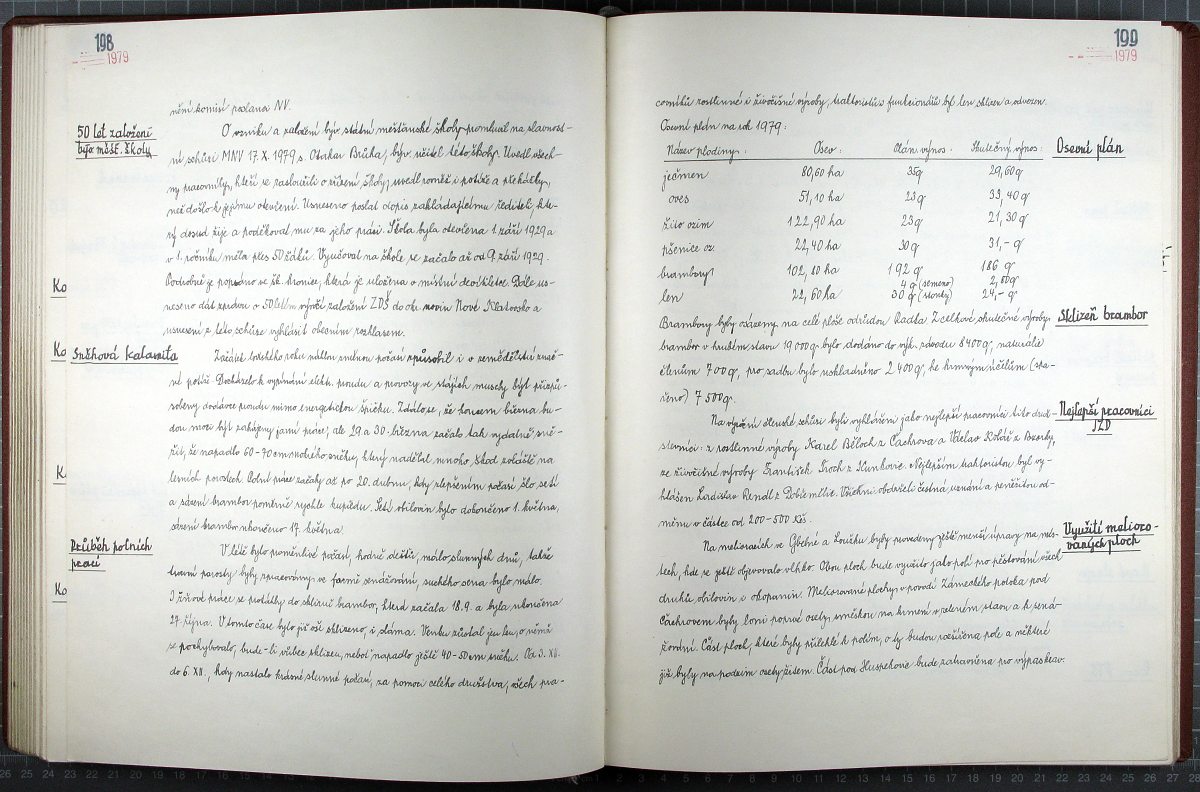 198
1979
nění komisí poslana NV.
50 let založení
býv. měšť. školy
O vzniku a založení býv. státní měšťanské školy promluvil na slavnost-
ní schůzi MNV 17. X. 1979 s. Otakar Brůha, býv. učitel této školy. Uvedl všech-
ny pracovníky, kteří se zasloužili o zřízení školy, uvedl rovněž i potíže a překážky,
než došlo k jejímu otevření. Usneseno poslat dopis zakládajícímu řediteli, kte-
rý dosud žije a poděkovat mu za jeho práci. Škola byla otevřena 1. září 1929 a
v 1. ročníku měla přes 50 žáků. Vyučovat na škole se začalo až od 9. září 1929.
Podrobně je popsáno ve šk. kronice, která je uložena v místní devítiletce. Dále us-
neseno dát zprávu o 50letém výročí založení ZDŠ do okr. novin Nové Klatovsko a
usnesení z této schůze vyhlásit obecním rozhlasem.
Ko
Ko
Sněhová kalamita
Začátek loňského roku náhlou změnou počasí způsobil i v zemědělství znač-
né potíže. Docházelo k vypínání elektr. proudu a provozy ve stájích musely být přizpů-
sobeny dodávce proudu mimo energetickou špičku. Zdálo se, že koncem března bu-
dou moci být zahájeny jarní práce, ale 29. a 30. března začalo tak vydatně sně-
žit, že napadlo 60-70 cm mokrého sněhu, který nadělal mnoho škod zvláště na
lesních porostech. Polní práce začaly až po 20. dubnu, kdy zlepšením počasí šlo setí
a sázení brambor poměrně rychle kupředu. Setí obilovin bylo dokončeno 1. května,
sázení brambor ukončeno 17. května.
K
Průběh polních
prací
V létě bylo proměnlivé počasí, hodně dešťů, málo slunných dnů, takže
travní porosty byly zpracovány ve formě senážování, suchého sena bylo málo.
I žňové práce se protáhly do sklizně brambor, která začala 18. 9. a byla ukončena
27. října. V tomto čase bylo již vše sklizeno, i sláma. Venku zůstal jen len, o němž
se pochybovalo, bude-li vůbec sklizen, neboť napadlo ještě 40-50 cm sněhu. Od 3. XII.
do 6. XII., kdy nastalo krásné slunné počasí, za pomoci celého družstva, všech pra-
Ko
199
1979
covníků rostlinné i živočišné výroby, traktoristů a funkcionářů byl len sklizen a odvezen.
Osevní plán na rok 1979:
Osevní plán
Název plodiny: Osev: Plán. výnos: Skutečný výnos:
ječmen 80,60 ha 35 q 29,60 q
oves 51,10 ha 25 q 33,40 q
žito ozim 122,90 ha 25 q 21,30 q
pšenice oz. 22,40 ha 30 q 31,- q
brambory 102,80 ha 192 q 186 q
len 22,60 ha 4 q (semeno) 2,80 q
30 q (stonky) 24,- q
Sklizeň brambor
Brambory byly sázeny na celé ploše odrůdou Radka. Z celkové skutečné výroby
brambor v hrubém stavu 19 000 q bylo dodáno do výk. závodu 8 400 q, naturálie
členům 700 q, pro sadbu bylo uskladněno 2 400 q, ke krmným účelům (spa-
řeno) 7 500 q.
Nejlepší pracovníci
JZD
Na výroční členské schůzi byli vyhlášeni jako nejlepší pracovníci tito druž-
stevníci: z rostlinné výroby Karel Běloch z Čachrova a Václav Kolář z Bradný,
ze živočišné výroby František Proch z Kunkovic. Nejlepším traktoristou byl vy-
hlášen Ladislav Rendl z Dobřemělic. Všichni obdrželi čestná uznání a peněžitou od-
měnu v částce od 200-500 Kčs.
Využití melioro-
vaných ploch
Na melioracích ve Gbelné a Loučku byly provedeny ještě menší úpravy na mís-
tech, kde se ještě objevovalo vlhko. Obou ploch bude využito jako polí pro pěstování všech
druhů obilovin i okopanin. Meliorované plochy v povodí Zámeckého potoka pod
Čachrovem byly loni poprvé osety směskou na krmení v zeleném stavu a k sená-
žování. Část ploch, které byly přilehlé k polím, o ty budou rozšířena pole a některé
již byly na podzim osety žitem. Část pod Huspekovic bude zatravněna pro výpas krav.